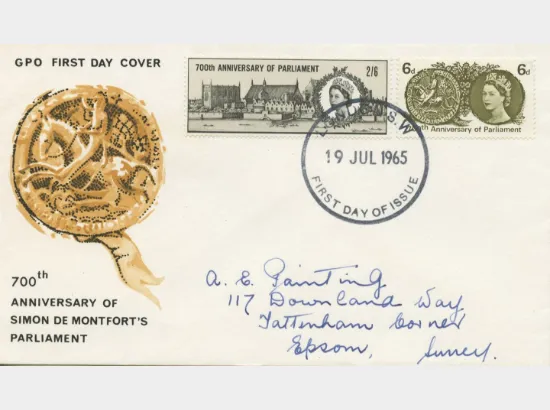 GPO FIRST DAY COVER
700th ANNIVERSARY OF PARLIAMENT
2/6
6d 6d
th Anniversary of Parliament
LONDON S.W
19 JUL 1965
FIRST DAY OF ISSUE
700th
ANNIVERSARY OF
SIMON DE MONTFORT'S
PARLIAMENT
A. E. Painting
117 Downland Way
Tattenham Corner
Epsom, Surrey.